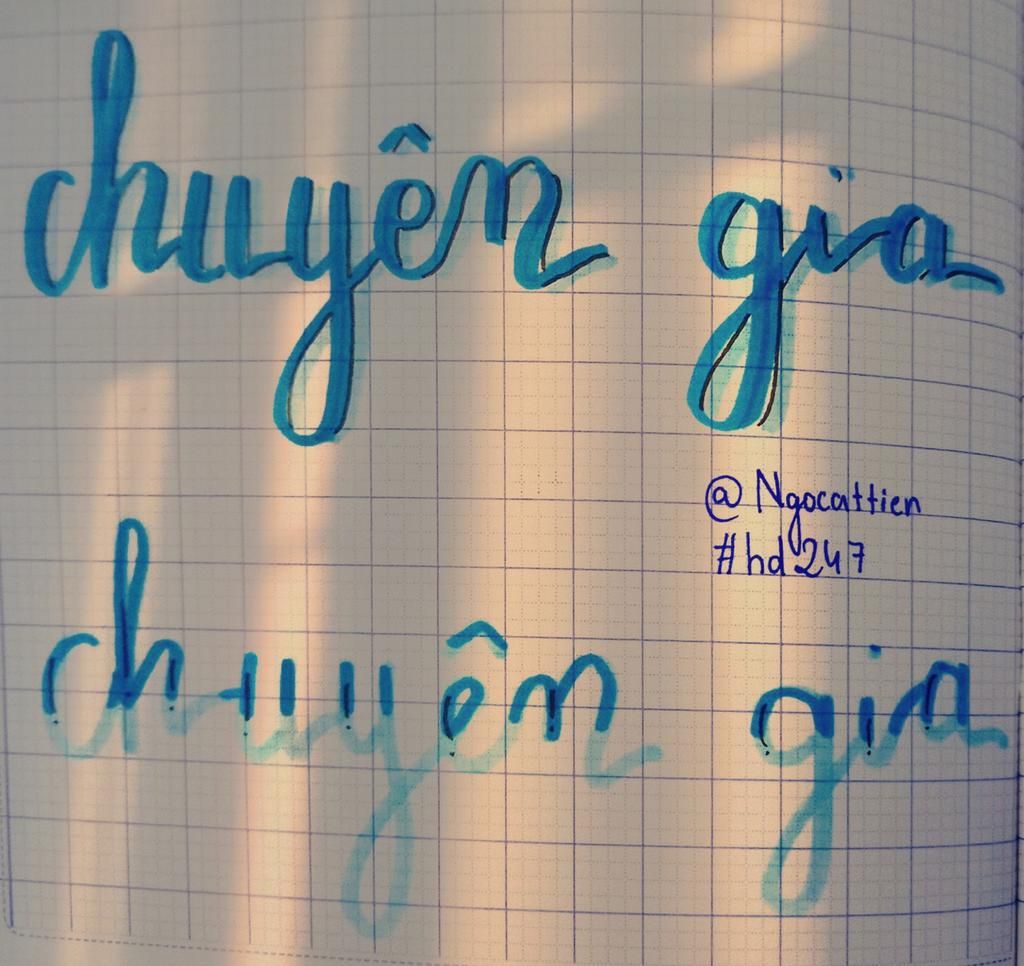 chuyên gia
@ Ngocattien
#hd247
chuyên gia